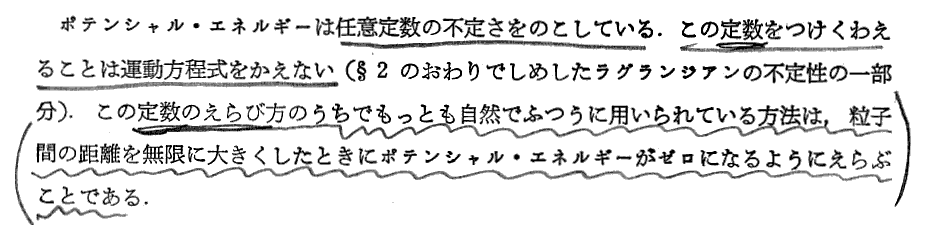 ポテンシャル・エネルギーは任意定数の不定さをのこしている．この定数をつけくわえ
ることは運動方程式をかえない（§2のおわりでしめしたラグランジアンの不定性の一部
分）．この定数のえらび方のうちでもっとも自然でふつうに用いられている方法は，粒子
間の距離を無限に大きくしたときにポテンシャル・エネルギーがゼロになるようにえらぶ
ことである．